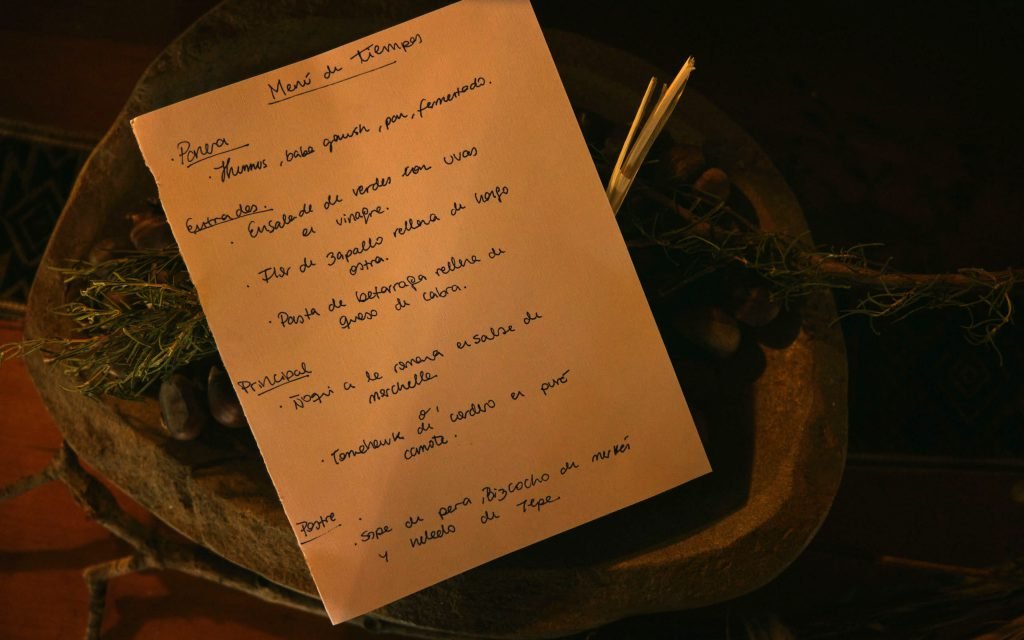 Menú de Tiempos
. Panera
. Hummus, baba ganush, pan, fermentado.
Entradas.
. Ensalada de verdes con uvas
en vinagre.
. Flor de zapallo rellena de hongo
ostra.
. Pasta de betarraga rellena de
queso de cabra.
Principal
. Ñoqui a la romana en salsa de
morchella
ó
. Tomahawk de cordero en puré
camote.
Postre
. Sopa de pera, Bizcocho de
y helado de Tepa